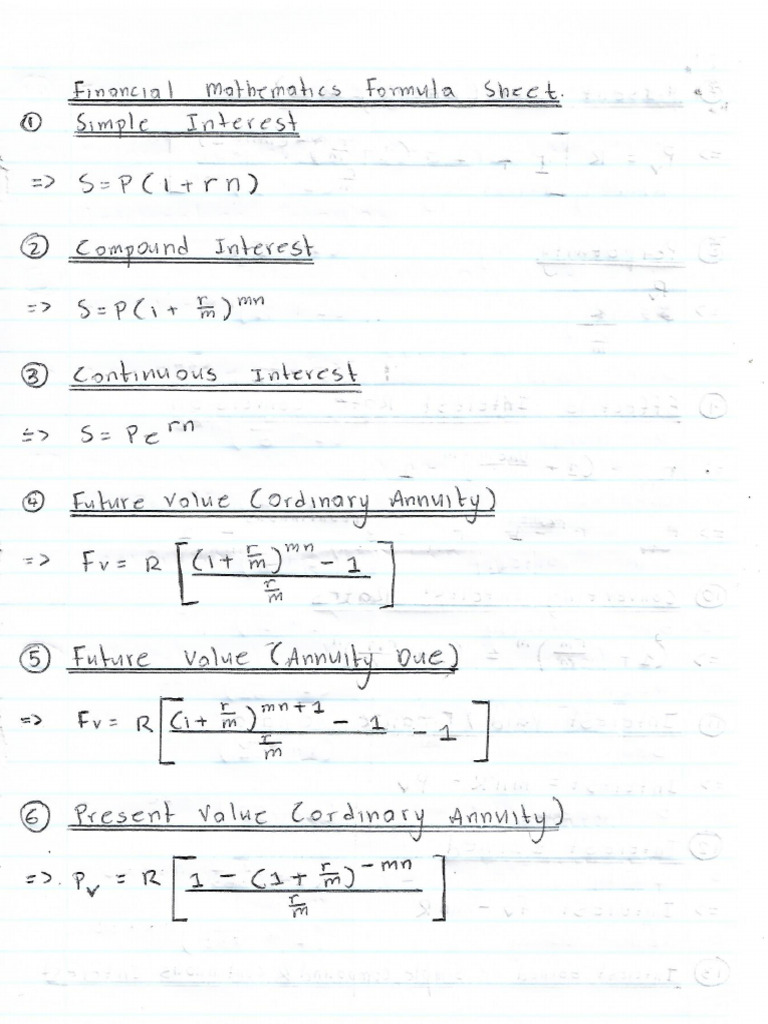 Financial Mathematics Formula Sheet.
① Simple Interest
=> S=P(1+rn)
② Compound Interest
=> S=P(1+ r/m)^mn
③ Continuous Interest
=> S= Pe^rn
④ Future Value (Ordinary Annuity)
=> Fv= R [ ((1+ r/m)^mn - 1) / (r/m) ]
⑤ Future Value (Annuity Due)
=> Fv= R [ ((1+ r/m)^mn+1 - 1) / (r/m) - 1 ]
⑥ Present Value (Ordinary Annuity)
=>. Pv = R [ (1 - (1+ r/m)^-mn) / (r/m) ]